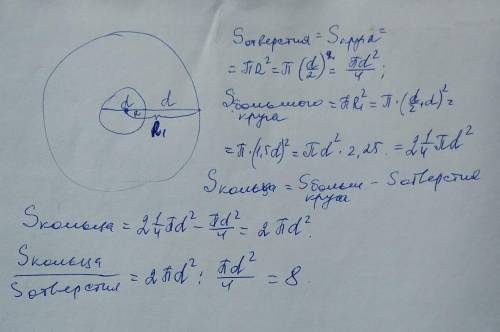 d d
R₁
Sотверстия = Sкруга =
= πR² = π(d/2)² = πd²/4;
Sбольшого круга = πR₁² = π·(d/2+d)² =
= π·(1,5d)² = πd²·2,25 = 2 1/4 πd²
Sкольца = Sбольш круга − Sотверстия
Sкольца = 2 1/4 πd² − πd²/4 = 2πd².
Sкольца/Sотверстия = 2πd² : πd²/4 = 8.